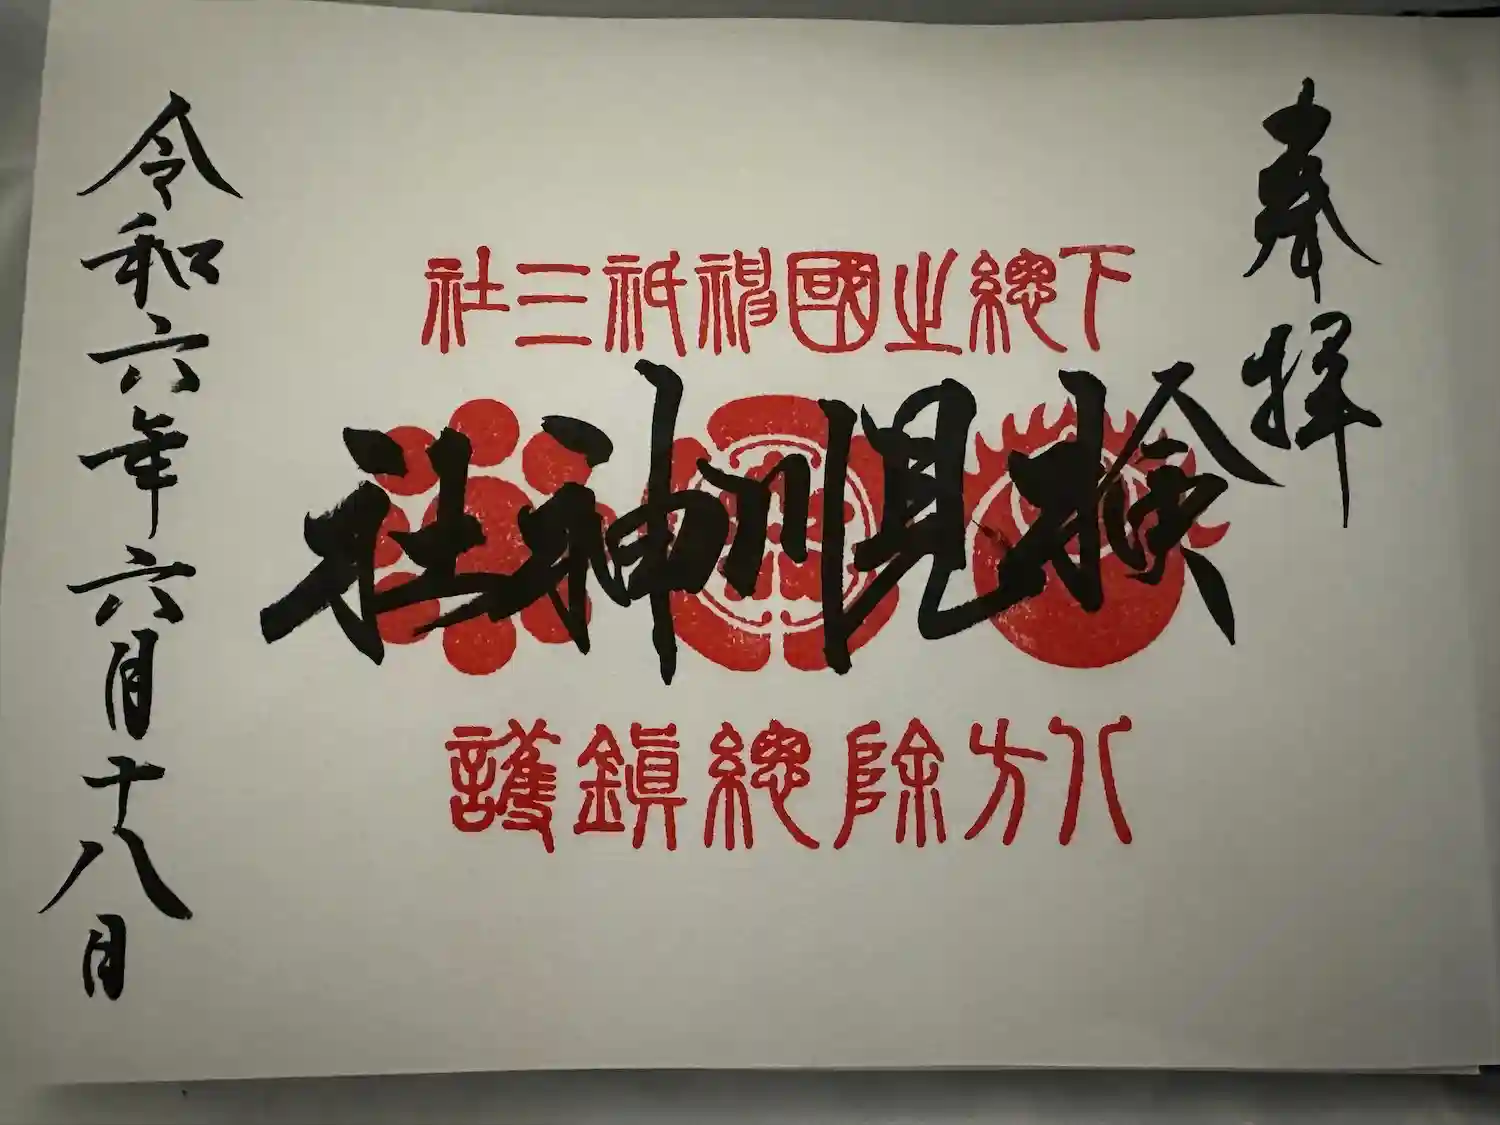 奉拝
下總之國神祇三社
検見川神社
八方除總鎭護
令和六年六月十八日